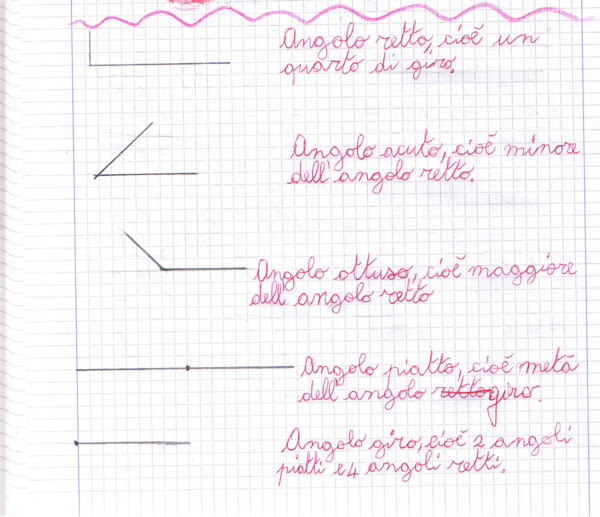 Angolo retto, cioè un
quarto di giro.
Angolo acuto, cioè minore
dell'angolo retto.
Angolo ottuso, cioè maggiore
dell'angolo retto
Angolo piatto, cioè metà
dell'angolo retto giro.
Angolo giro, cioè 2 angoli
piatti e 4 angoli retti.